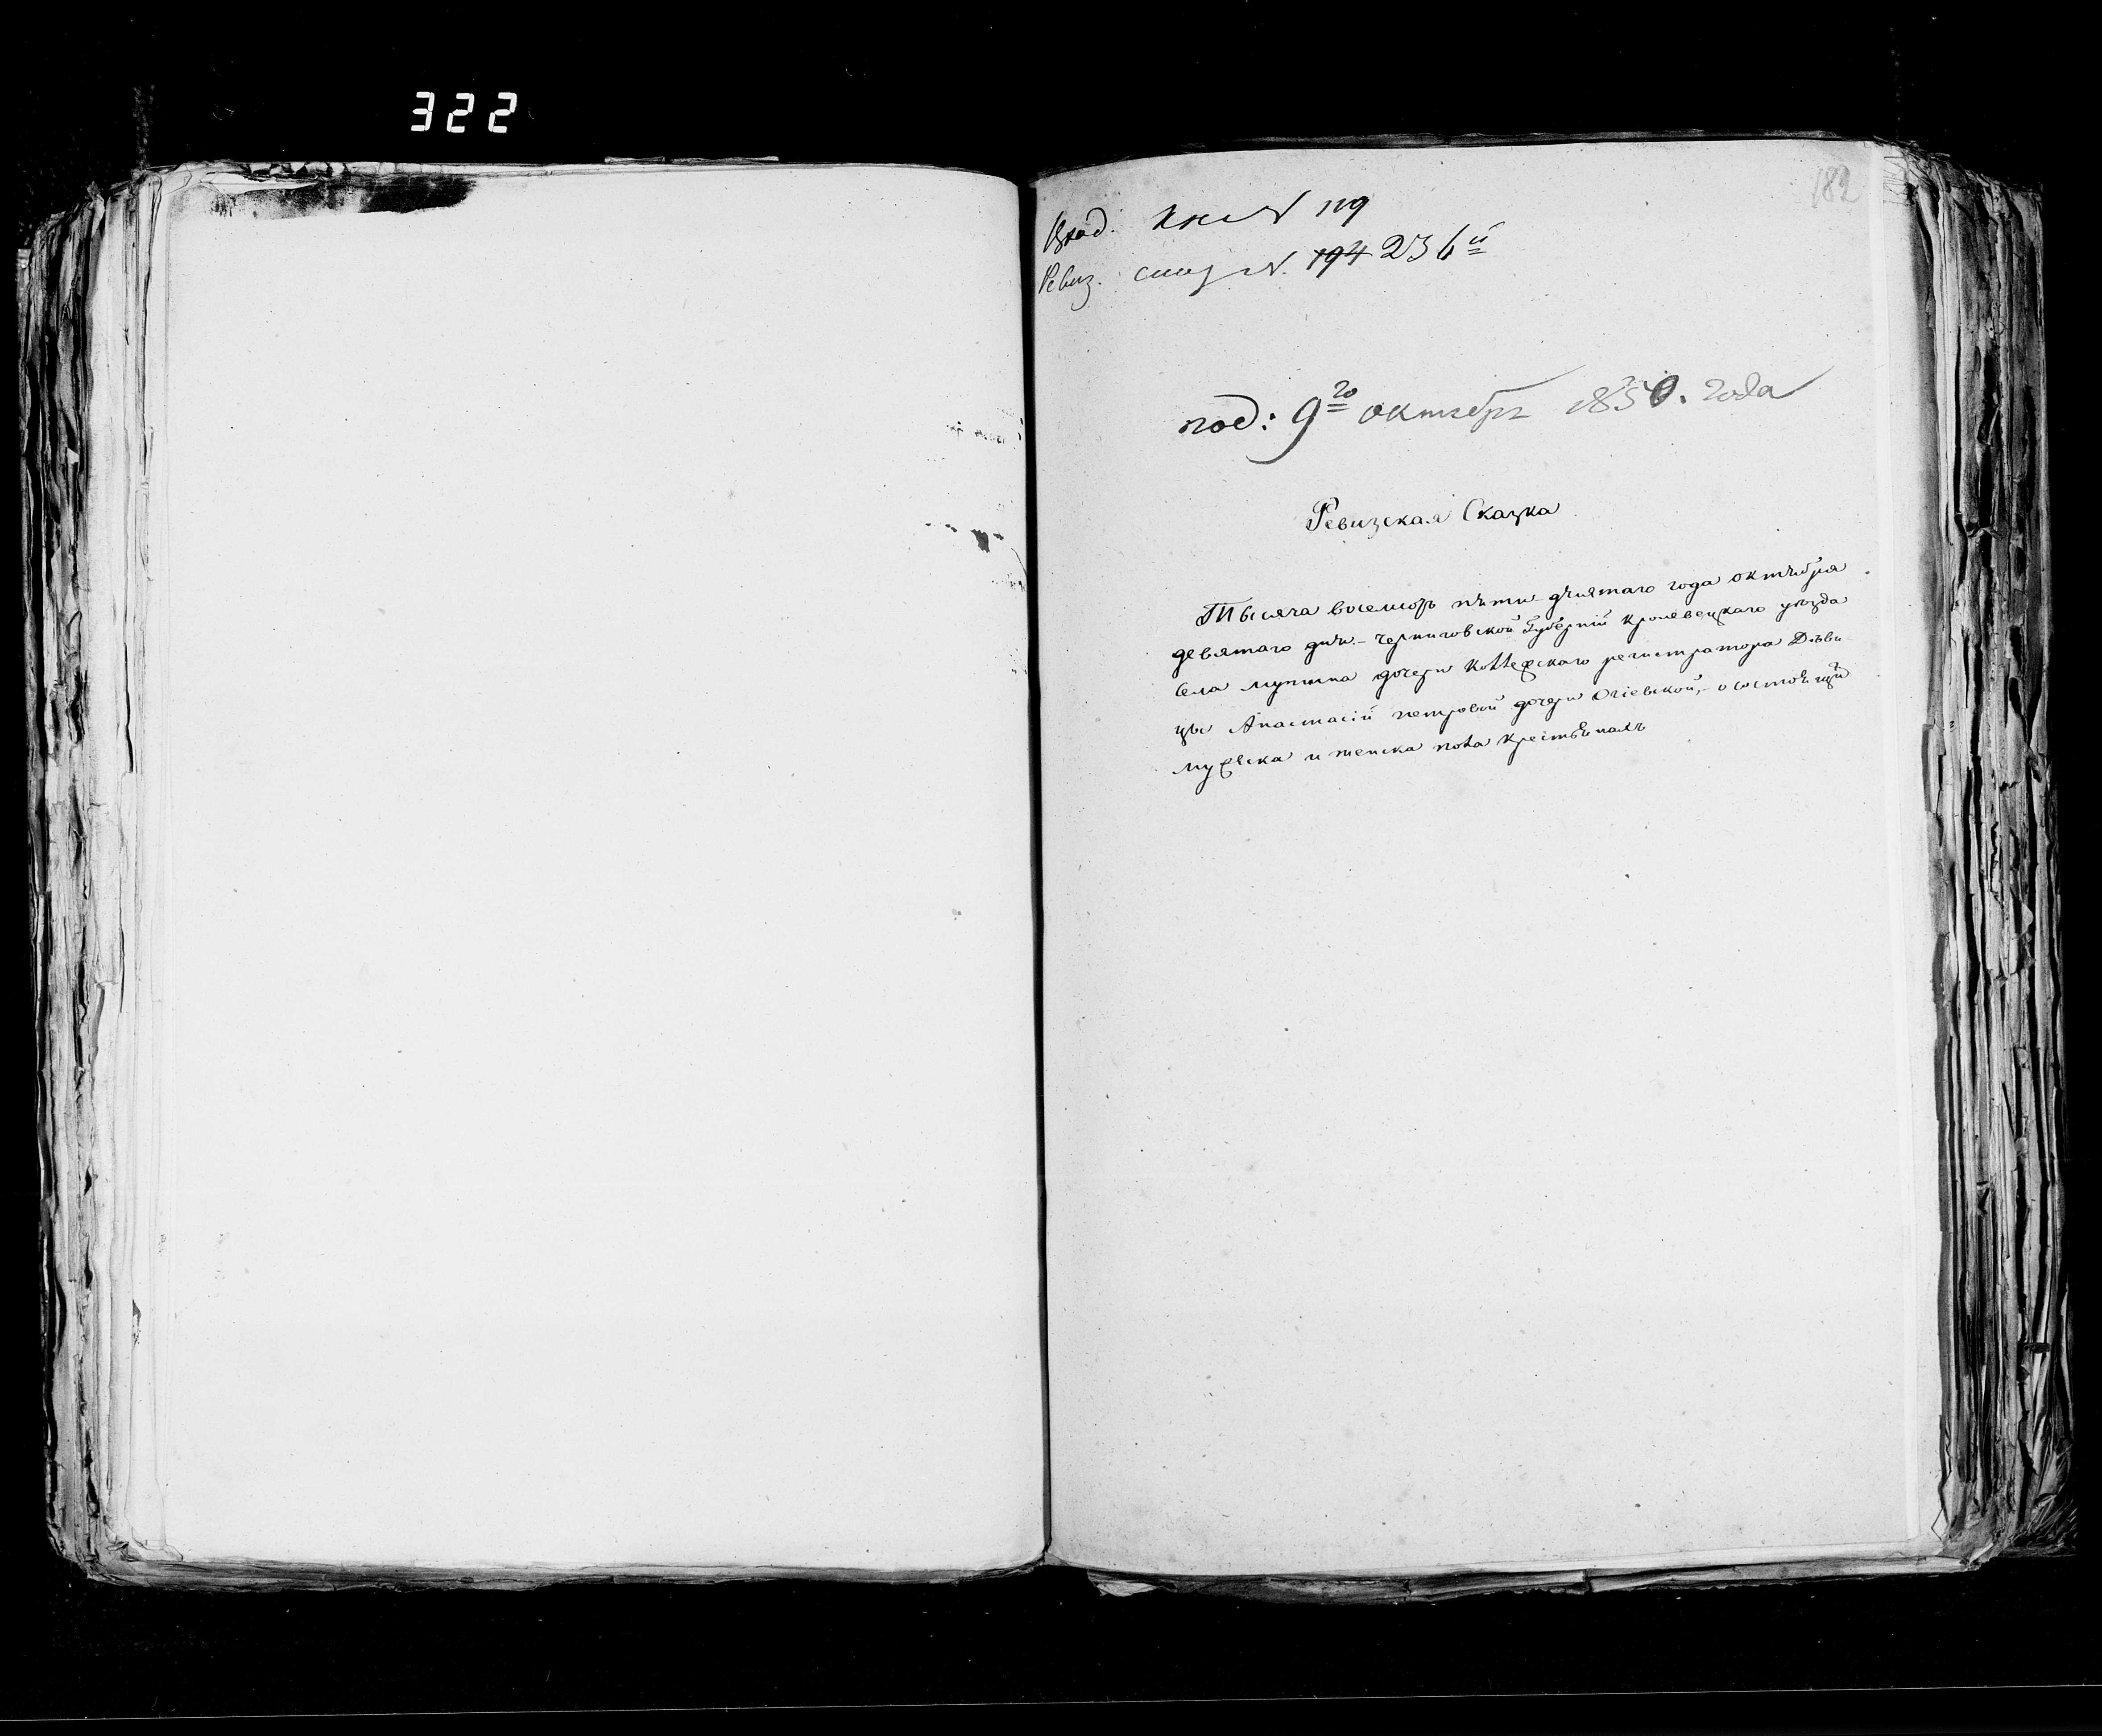 322
182
Вход. кн. № 119
Ревиз. сказ. №. 194 236й
под: 9го октября 1850. года
Ревизская Сказка
Тысяча восемсотъ пѣти дѣсятаго года октѣбря
девятаго дня - черниговской Губерніи Кролевецкаго уѣзда
Села мутина дочери Коллежскаго регистратора Дѣви
цы Анастасіи петровой дочери Огіевской, - о состоѣщихъ
мужеска и женска пола Крестьѣнахъ